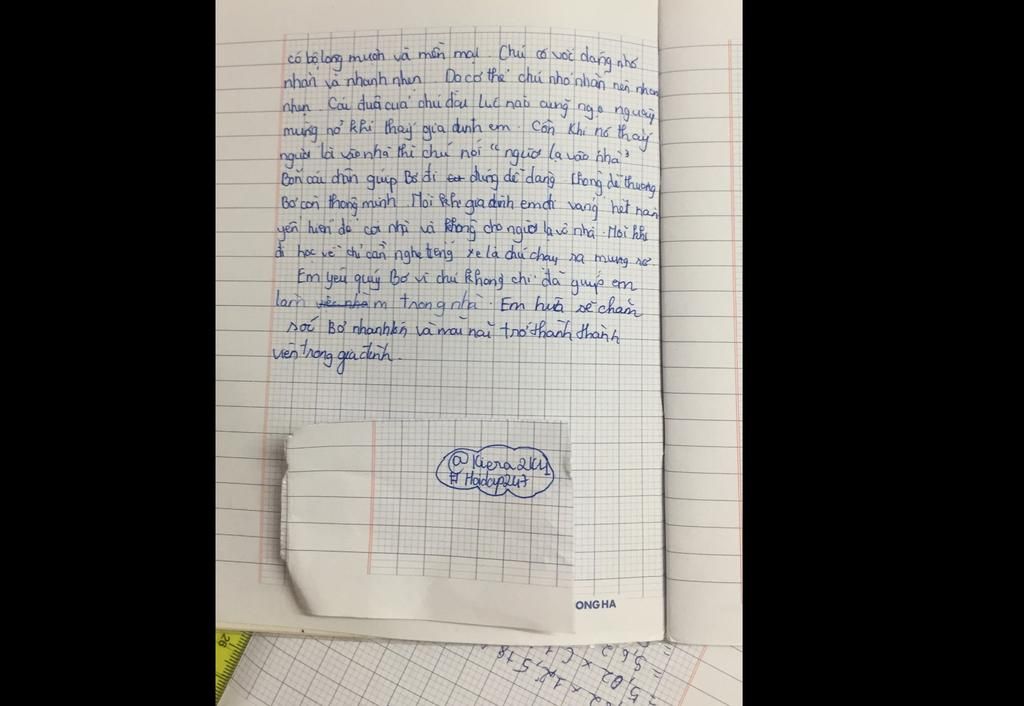 có bộ lông mượn và mền mại Chú có vóc dáng nhỏ
nhắn và nhanh nhẹn. Do cơ thể chú nhỏ nhắn nên nhanh
nhẹn. Cái đuôi của chú đâu lúc nào cung ngo nguẩy
mừng nở khi thấy gia đinh em. Còn khi nó thấy
người lạ vào nhà thì chú nói "người lạ vào nhà"
Bốn cái chân giúp Bơ đi đứng dễ dàng không dễ thương
Bơ còn thông minh. Mỗi khi gia đình em đi vắng hết nằm
yên hiên để coi nhà và không cho người lạ vô nhà. Mỗi khi
đi học về chỉ cần nghe tiếng xe là chú chạy ra mừng rơ
Em yêu quý Bơ vì chú không chỉ đã giúp em
làm trong nhà. Em hứa sẽ chăm
sóc Bơ nhanh lớn và mãi nãi trở thành thành
viên trong gia đình.
@Kiera2k11
#Hoidap247
ONG HA
26